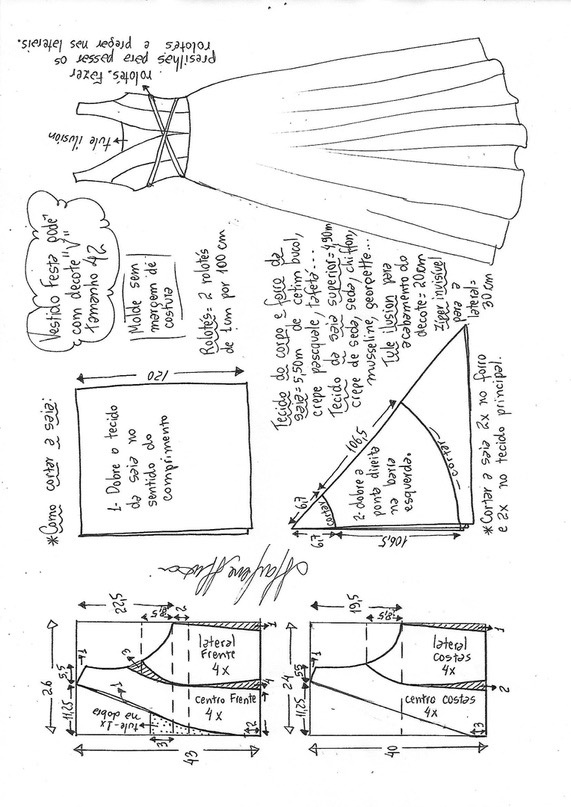 presilhas para passar os
rolotés e pregar nas laterais.
rolotés. Fazer
tule ilusión
Vestido Festa pode
com decote "V"
Tamanho 42
Molde sem
margem de
costura
Rolotés = 2 rolotés
de 1cm por 100 cm
Tecido do corpo e forro da
saia = 5,50m de cetim bucol,
crepe pasquale, tafetá...
Tecido da saia superior = 4,90m
crepe de seda, seda chiffon,
musseline, georgette...
Tule ilusion para
acabamento do
decote = 20cm
Zíper invisível
para a
lateral =
30 cm
*Como cortar a saia:
120
1- Dobre o tecido
da saia no
sentido do
comprimento
6,7
106,5
cortar
2- dobre a
ponta direita
na barra
esquerda.
cortar
6,7
106,5
*Cortar a saia 2x no forro
e 2x no tecido principal.
26
22,5
5,5
11,25
8,5
2
1
3
lateral
Frente
4x
1
1
centro Frente
4x
tule-1x
na dobra
3
4
2
43
24
19,5
5,5
11,25
8,5
1
lateral
costas
4x
1
centro costas
4x
2
3
40